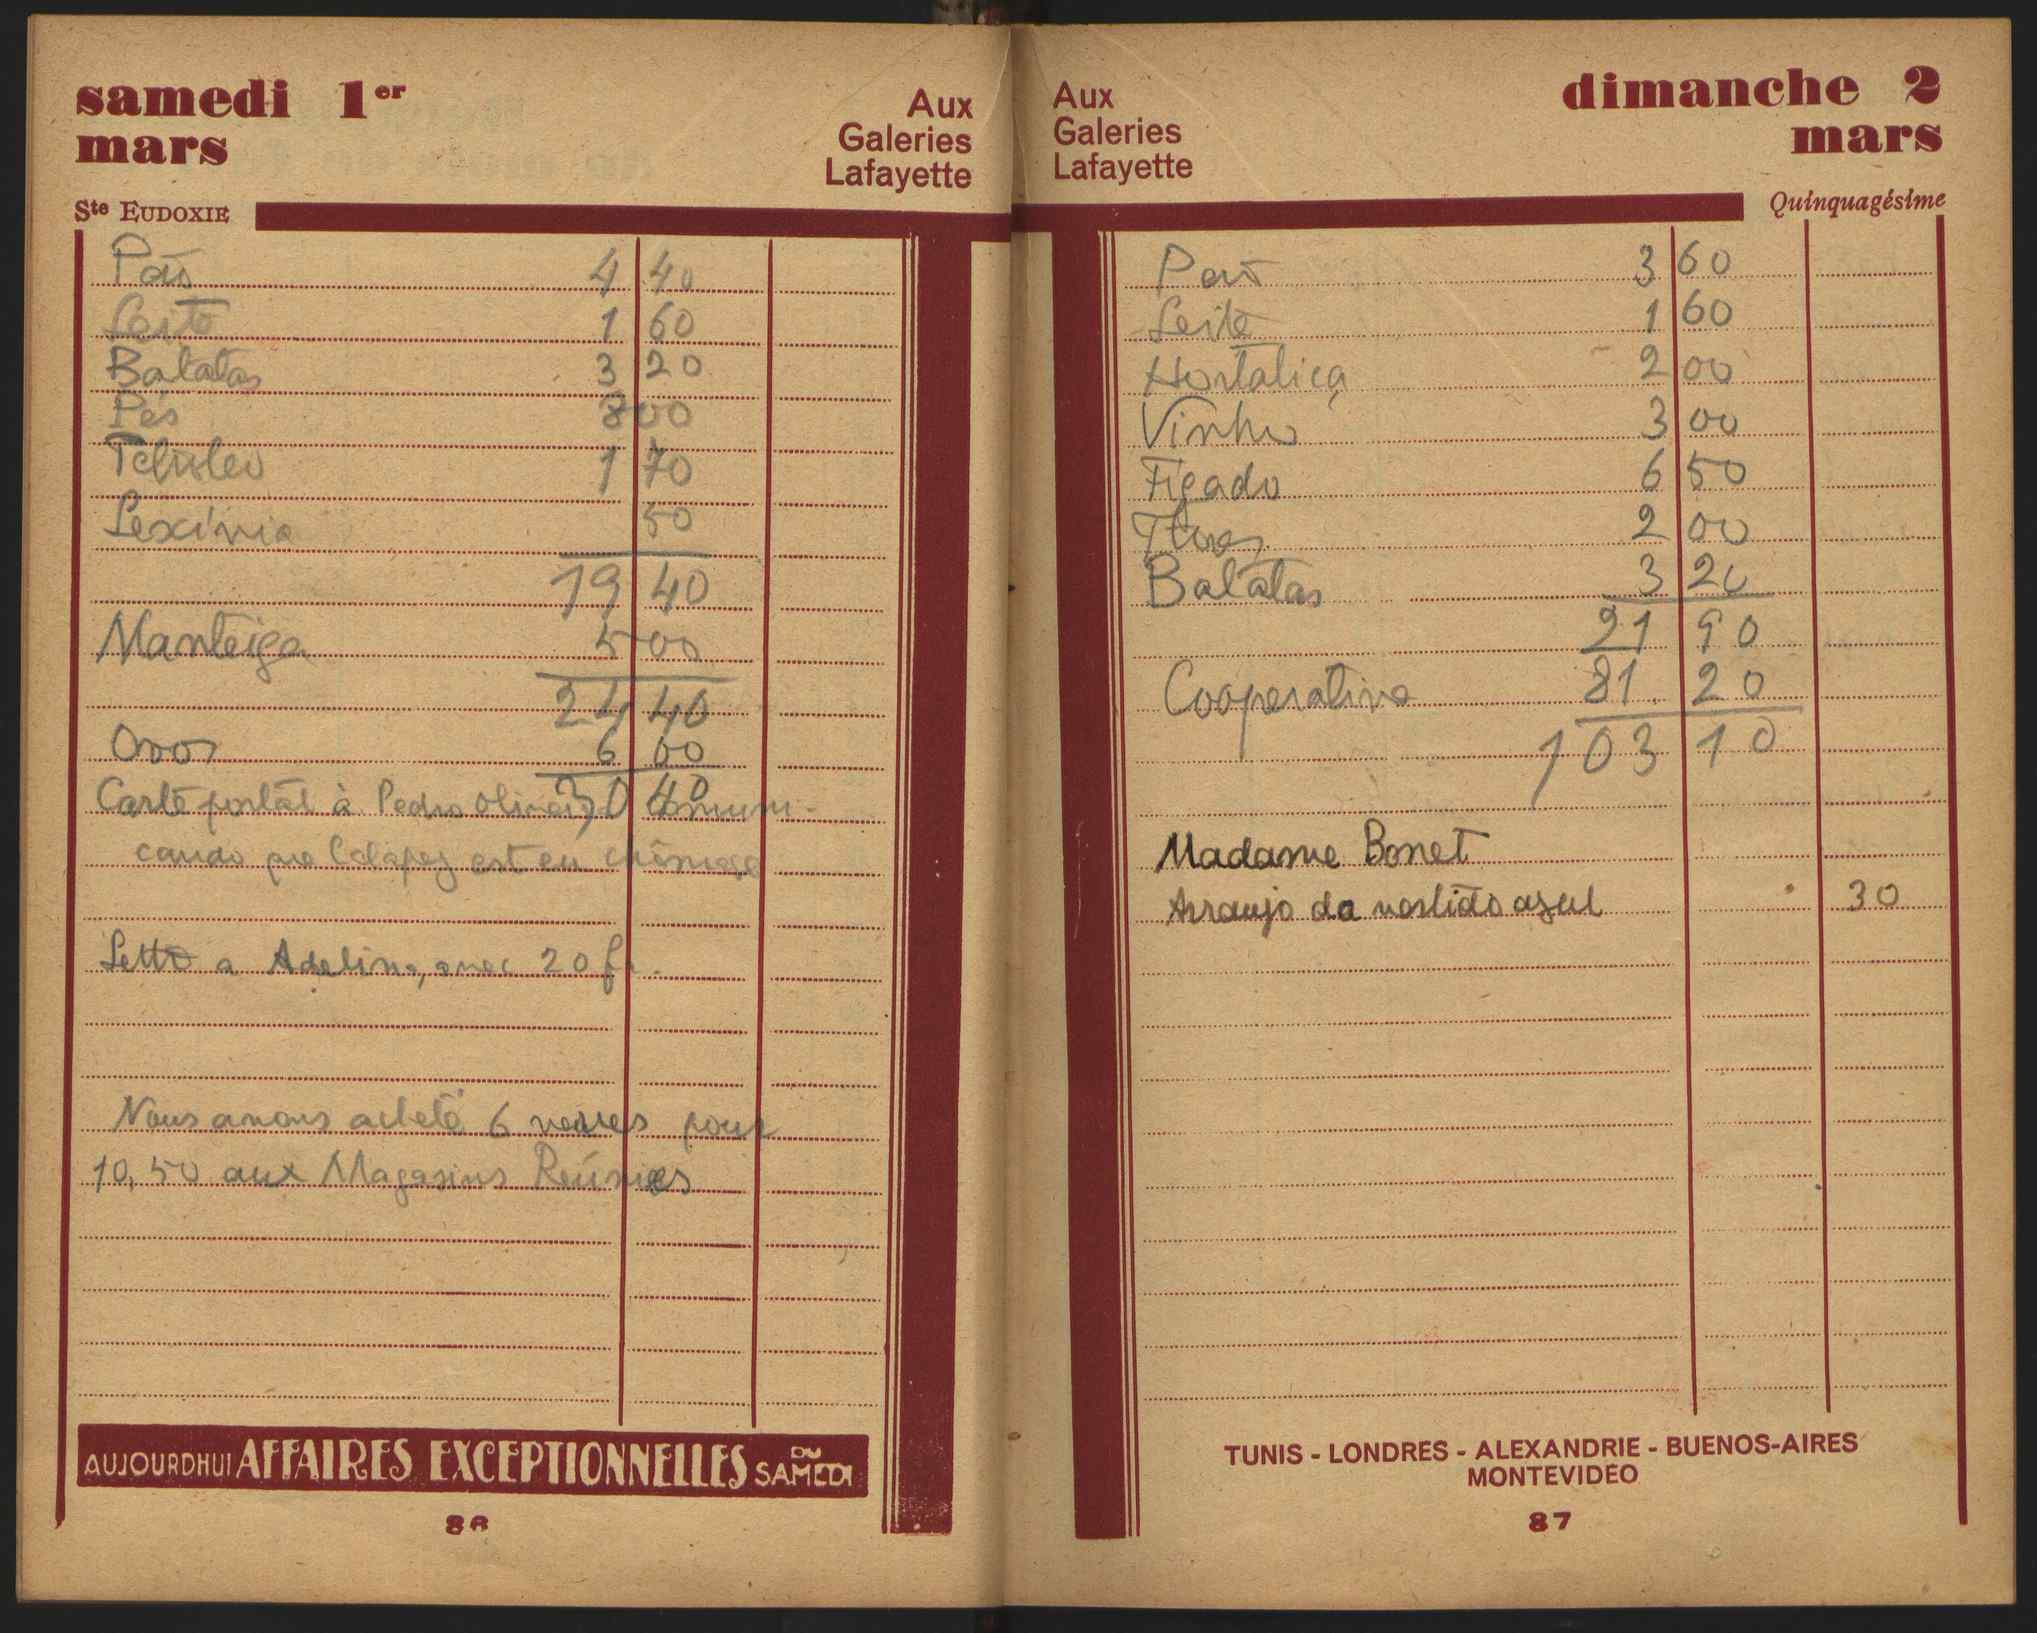 samedi 1er
mars
Aux
Galeries
Lafayette
Ste EUDOXIE
Pão 4 40
Leite 1 60
Batatas 3 20
Pés 8 00
Petroleo 1 70
Lexívia 50
19 40
Manteiga 5 00
24 40
Ovos 6 00
30 40
Carte postal à Pedro Oliveira, comuni-
cando que Calapez est en chômage
Lettre a Adelina, avec 20 fr.
Nous avons acheté 6 verres pour
10,50 aux Magasins Reúnies
AUJOURDHUI AFFAIRES EXCEPTIONNELLES DU SAMEDI
86
Aux
Galeries
Lafayette
dimanche 2
mars
Quinquagésime
Pão 3 60
Leite 1 60
Hortaliça 2 00
Vinho 3 00
Figado 6 50
Flores 2 00
Batatas 3 20
21 90
Cooperativa 81 20
103 10
Madame Bonet
Arranjo do vestido azul 30
TUNIS - LONDRES - ALEXANDRIE - BUENOS-AIRES
MONTEVIDÉO
87